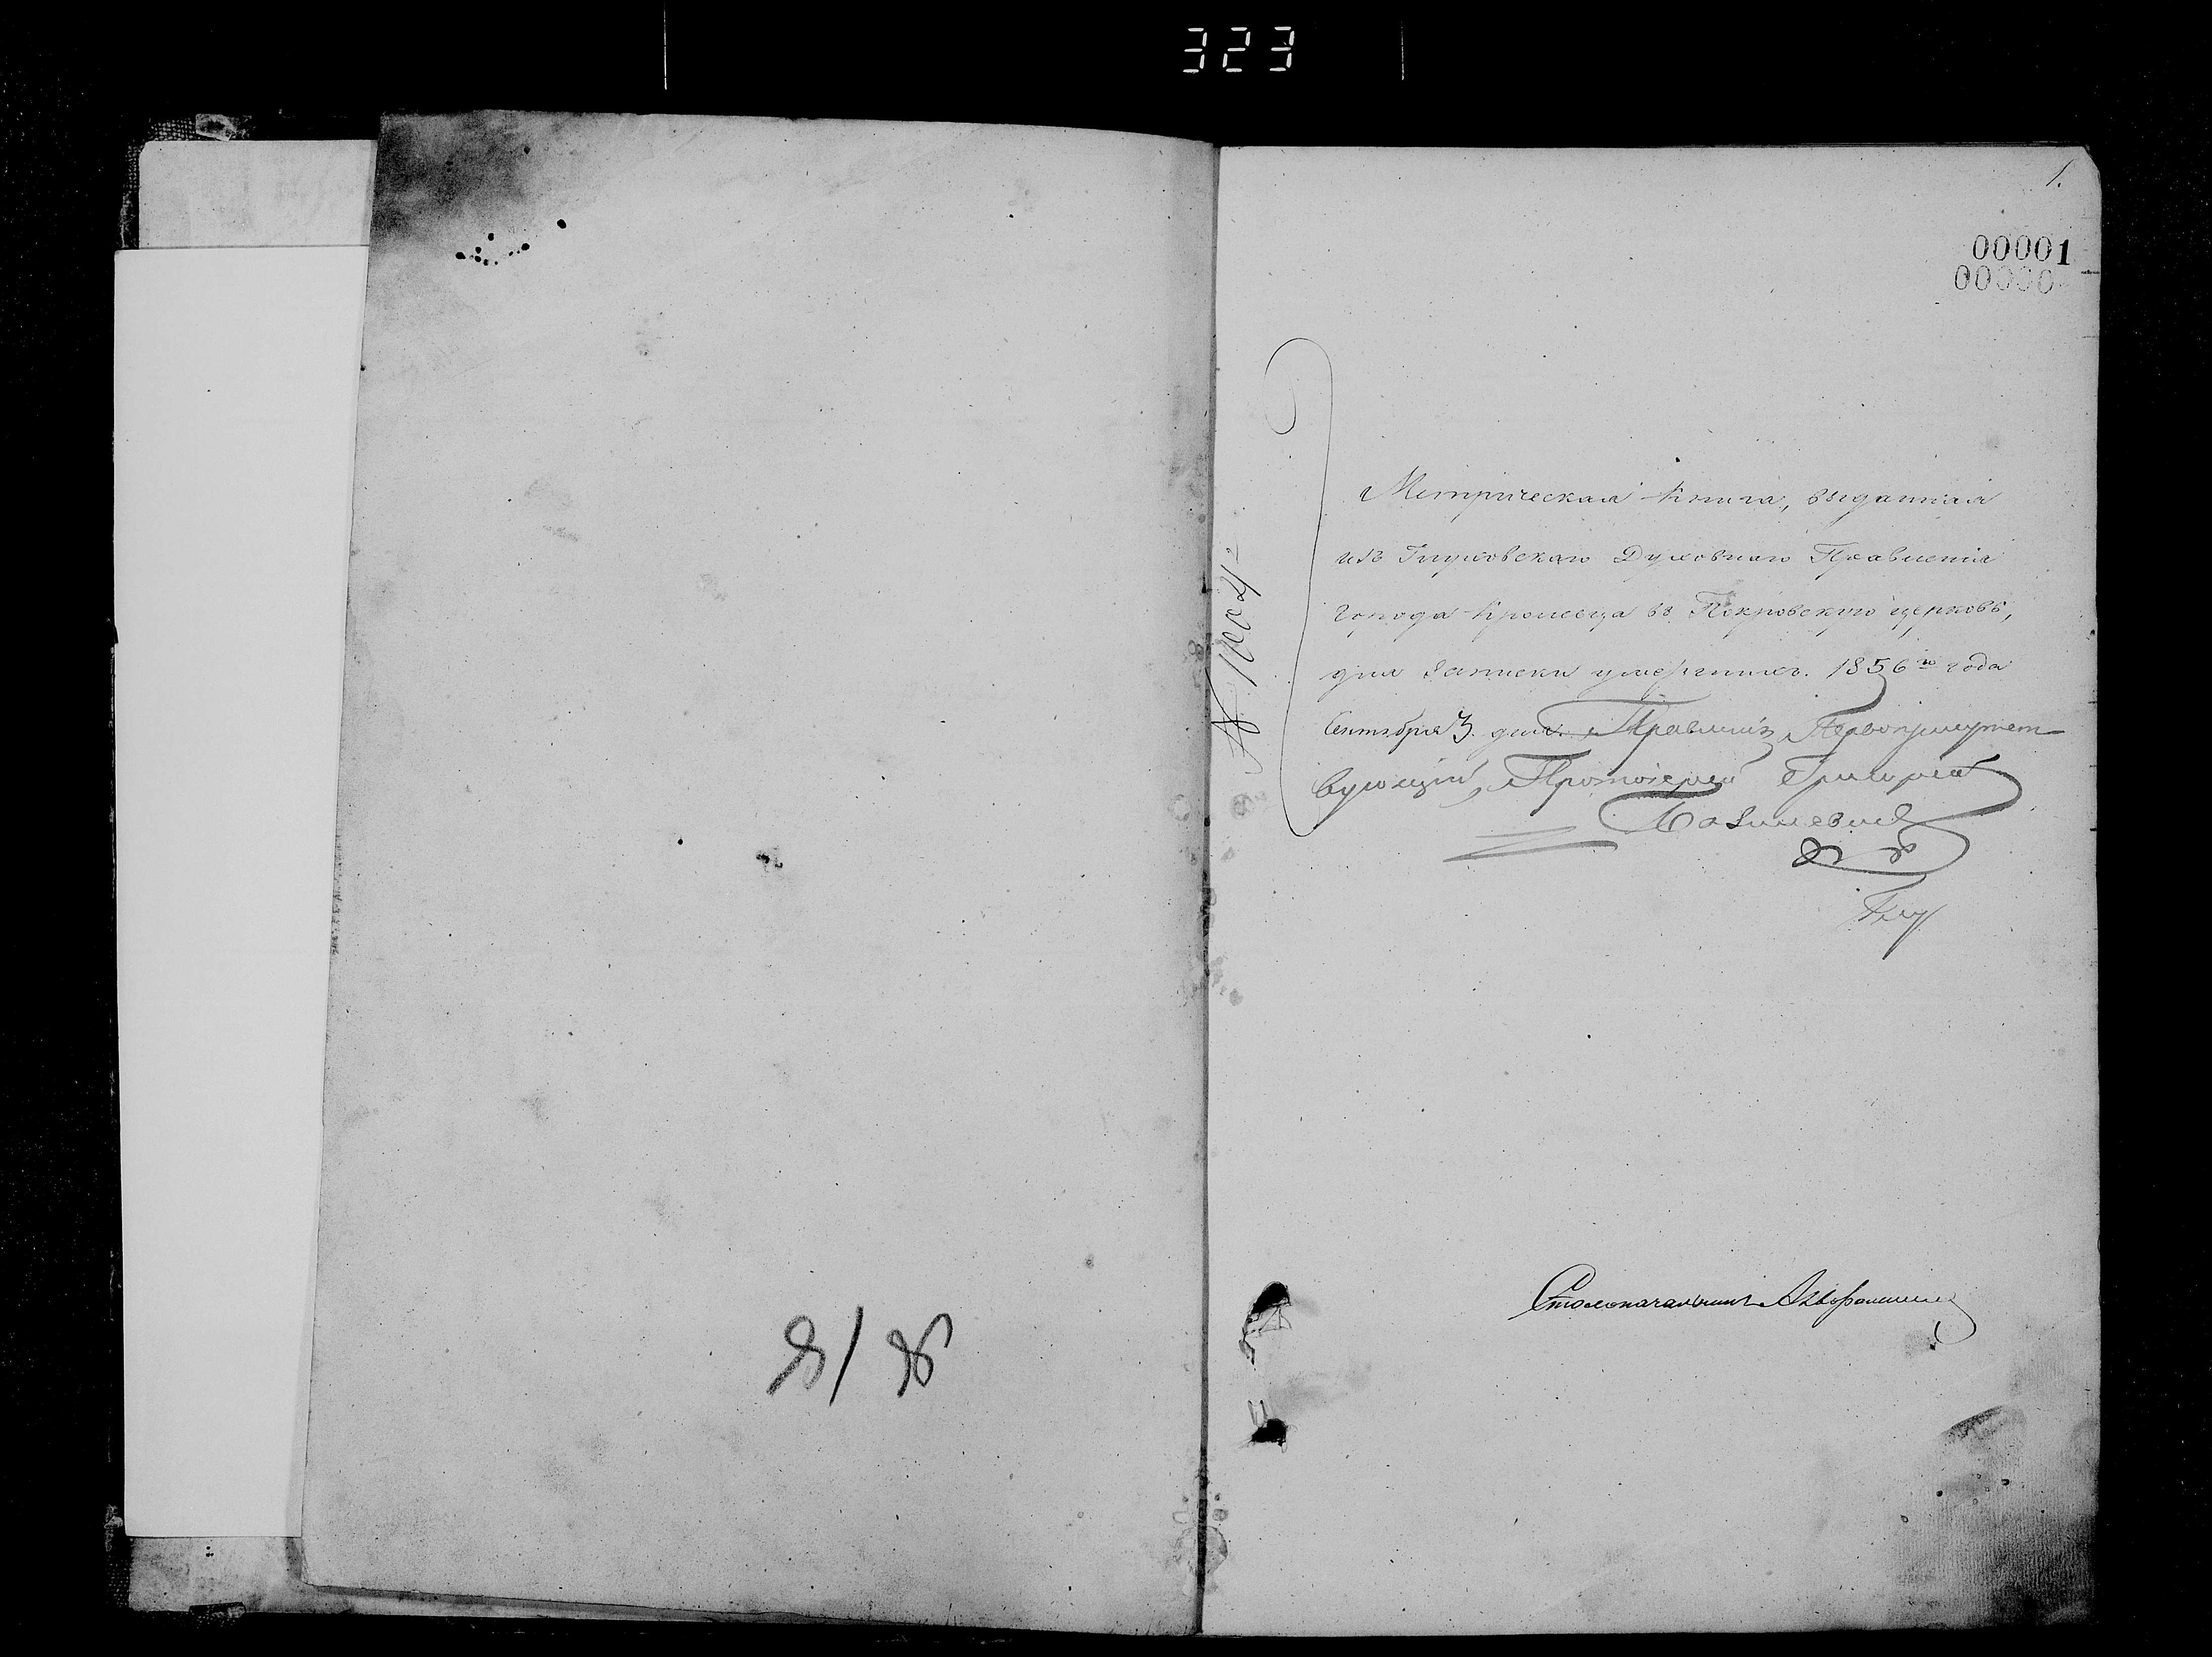 323
1.
00001
00000
№ 1004
Метрическая Книга, выданная
изъ Глуховскаго Духовнаго Правленія
города Кролевца въ Покровскую церковь,
для записки умершихъ. 1856го года
Сентября 3 дня. Правленія Первоприсутст-
вующій, Протоіерей Григорій
Базилевичъ
Столоначальникъ